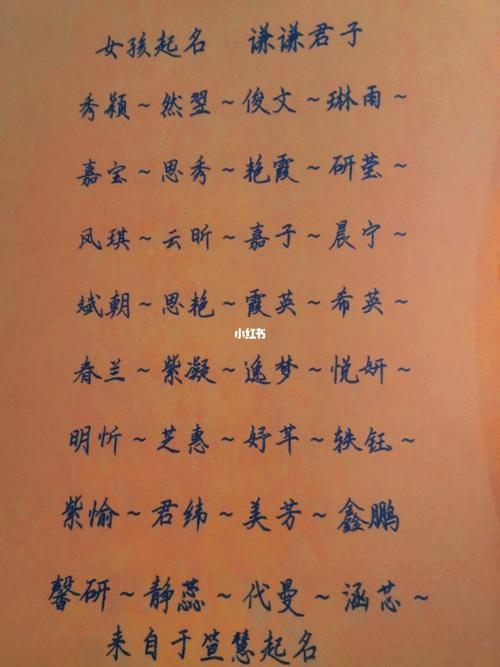 女孩起名 谦谦君子
秀颖~然翌~俊文~琳雨~
嘉宝~思秀~艳霞~研莹~
凤琪~云昕~嘉子~晨宁~
斌朝~思艳~霞英~希英~
小红书
春兰~紫凝~逸梦~悦妍~
明忻~芝惠~妤芊~轶钰~
紫愉~君纬~美芳~鑫鹏
馨研~静蕊~代曼~涵芯~
来自于萱慧起名